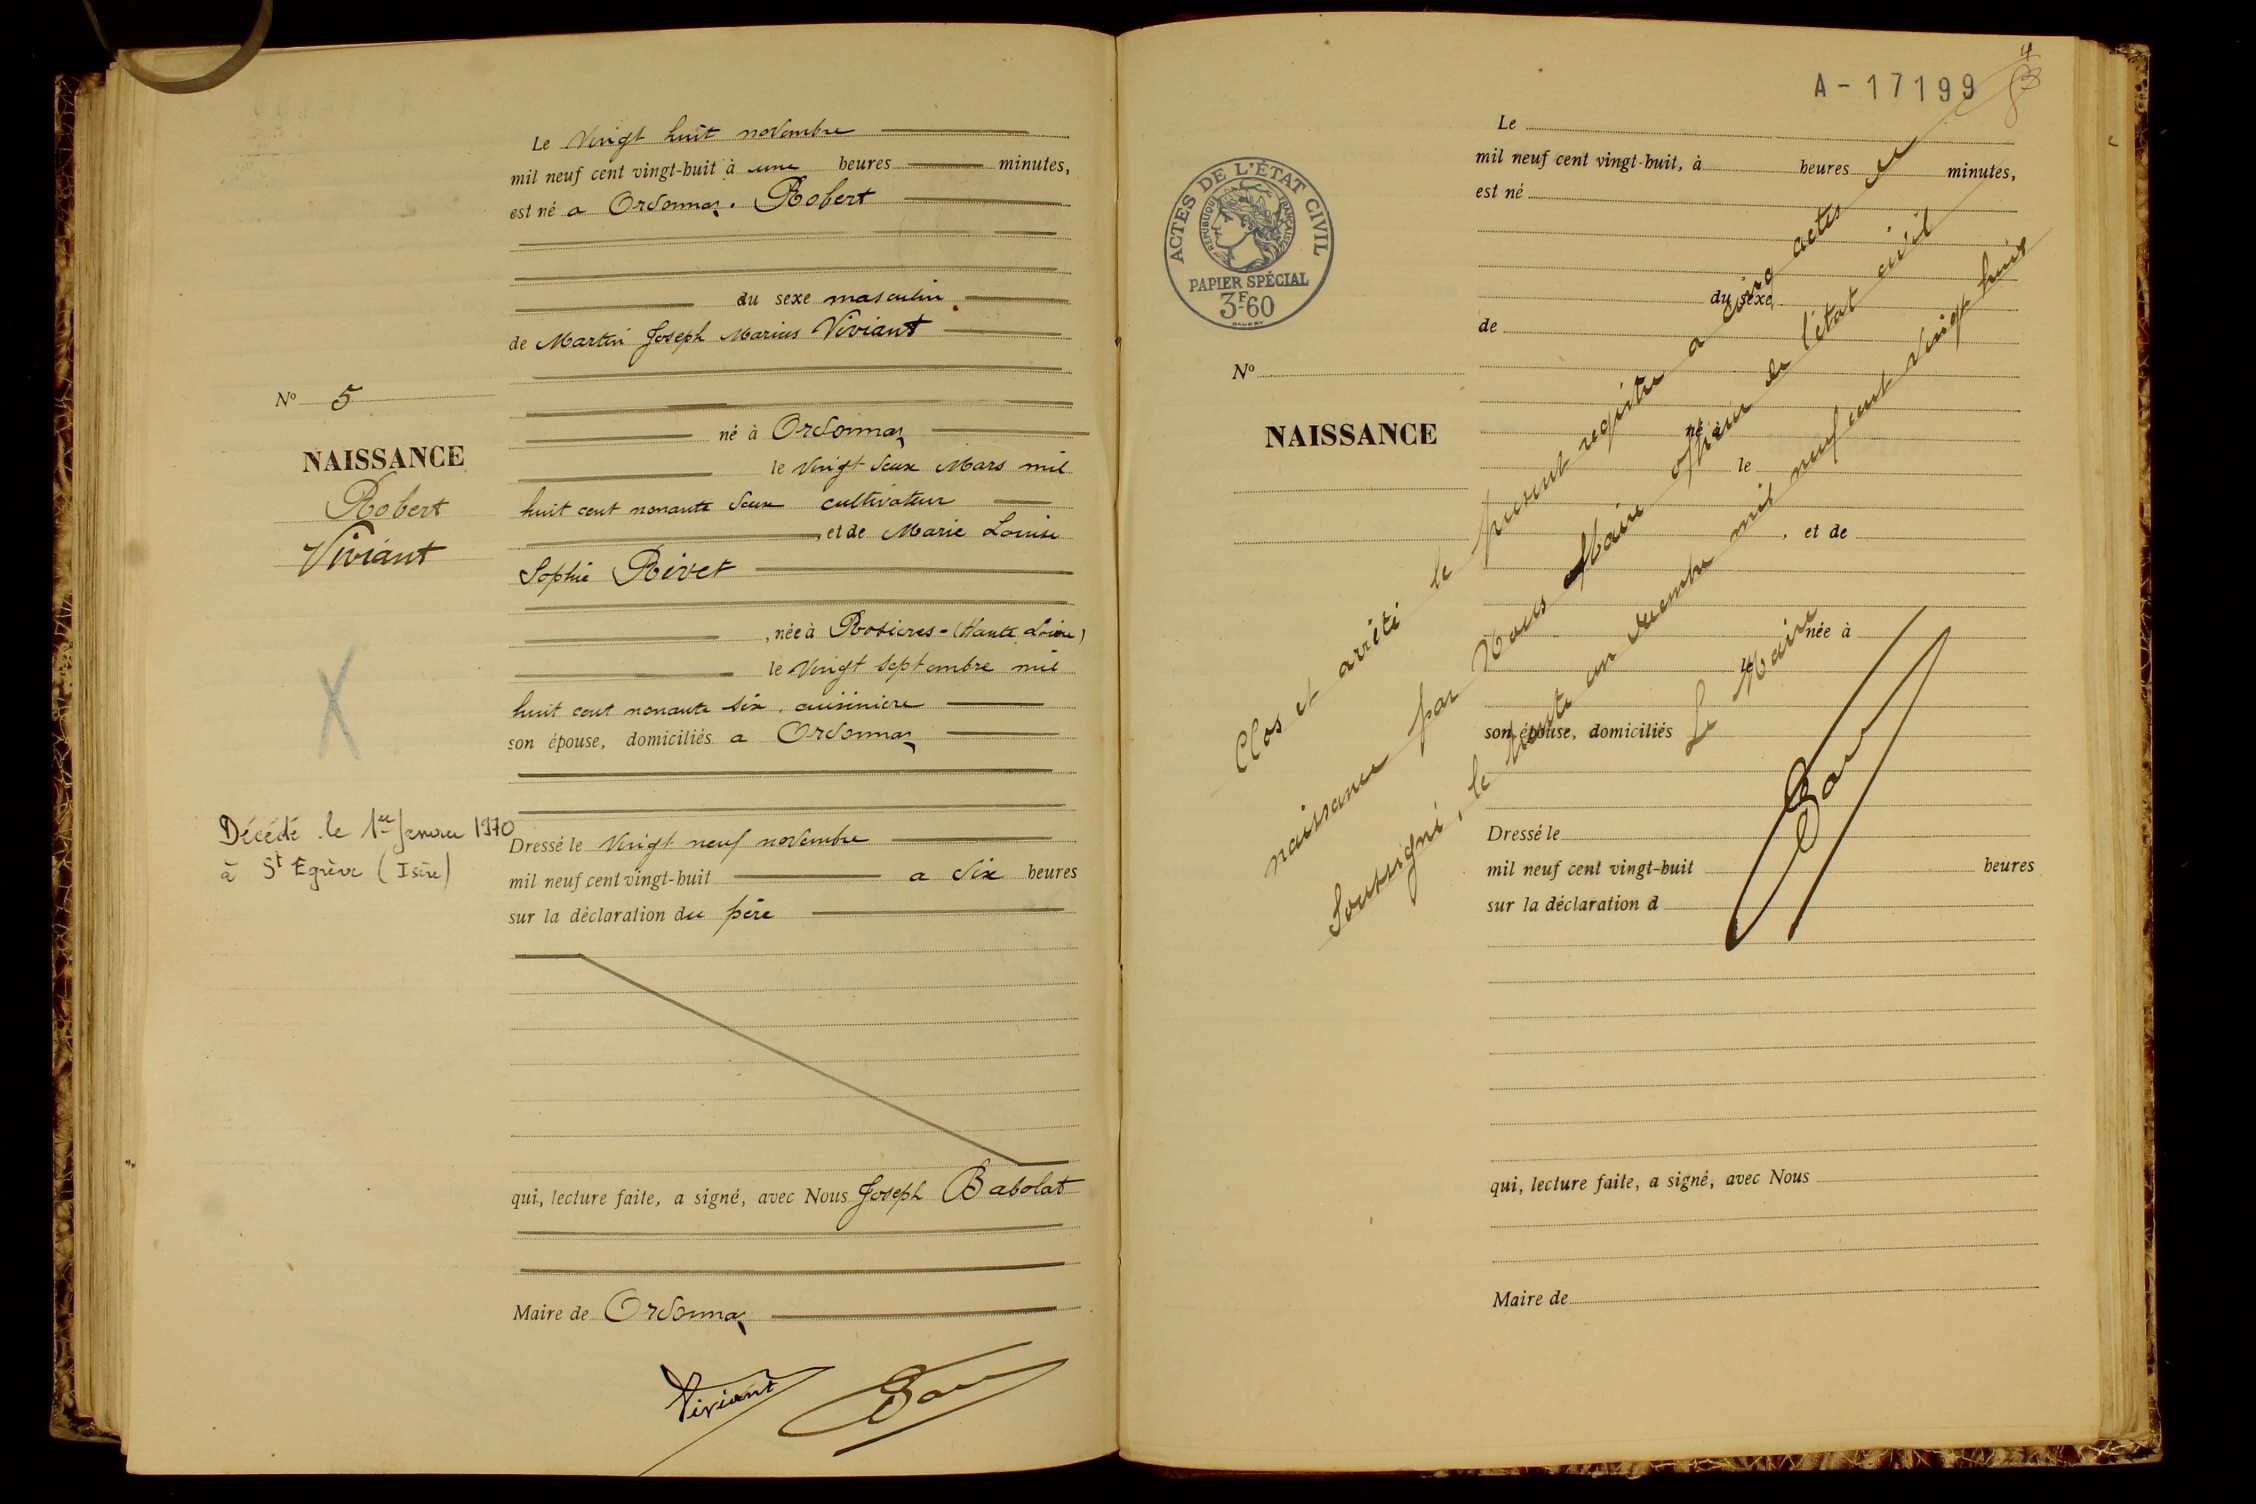 Le Vingt huit novembre
mil neuf cent vingt-huit à une heures minutes,
est né a Ordonnaz. Robert
du sexe masculin
de Martin Joseph Marius Viviant
né à Ordonnaz
le Vingt deux Mars mil
huit cent nonante deux cultivateur
, et de Marie Louise
Sophie Rivet
, née à Rosieres - (Haute Loire)
le Vingt Septembre mil
huit cent nonante six, cuisiniere
son épouse, domiciliés a Ordonnaz
Dressé le Vingt neuf novembre
mil neuf cent vingt-huit a dix heures
sur la déclaration du père
qui, lecture faite, a signé, avec Nous Joseph Babolat
Maire de Ordonnaz
Viviant
No 5
NAISSANCE
Robert
Viviant
X
Décédé le 1er Janvier 1970
à St Egrève (Isère)
A - 17199
ACTES DE L'ÉTAT CIVIL
RÉPUBLIQUE FRANÇAISE
PAPIER SPÉCIAL
3F60
No
NAISSANCE
Le
mil neuf cent vingt-huit, à heures minutes,
est né
du sexe
de
né à
le
, et de
née à
le
son épouse, domiciliés
Dressé le
mil neuf cent vingt-huit heures
sur la déclaration d
qui, lecture faite, a signé, avec Nous
Maire de
Clos et arrêté le présent registre a cinq actes de
naissance par Nous Maire officier de l'état civil
Soussigné, le trente un decembre mil neuf cent vingt huit
Le Maire